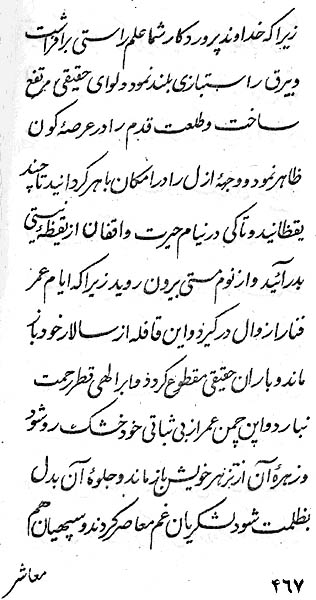 زیرا که خداوند پروردگار شما علم راستی برافراشت
و بیرق راستبازی بلند نمود و لوای حقیقی مرتفع
ساخت و طلعت قدم را در عرصهٔ کون
ظاهر نمود و وجههٔ ازل را در امکان باهر گردانید تا چند
یقظانید و تا کی در نیام حیرت واقفان از یقظهٔ نیستی
بدر آئید و از نوم مستی برون روید زیرا که ایام عمر
فنار از وال در گیرد و این قافله از سالار خود باز
ماند و باران حقیقی مقطوع گردد و ابر الهی قطر رحمت
نبارد و این چمن عمر از بی ثباتی خود خشک رو شود
و زهرهٔ آن از تزهر خویش باز ماند و جلوهٔ آن بدل
بظلمت شود لشکریان غم معاصر کردند و سپهیان هم
معاشر
۴۶۷